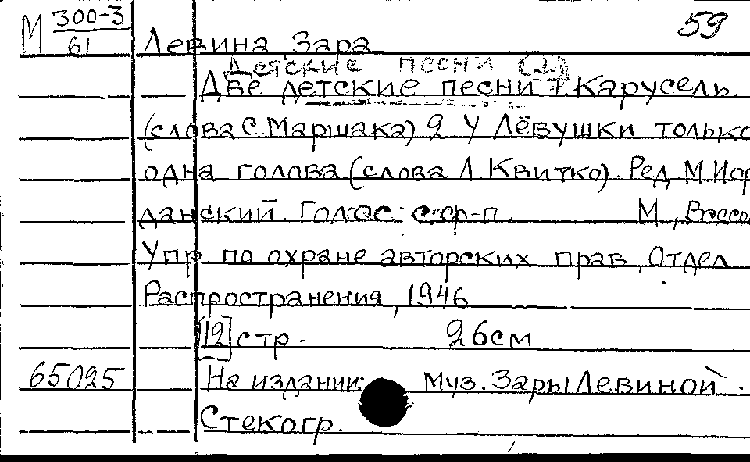 М 300-3 59
61 Левина, Зара
Детские песни (2)
Две детские песни 1 Карусель
(слова С. Маршака) 2 У Лёвушки только
одна голова (слова Л. Квитко). Ред. М. Иор
данский. Голос с ф-п. М., Всесо
Упр по охране авторских прав, Отдел
Распространения, 1946
[12] стр. 26см
65025 На издании: Муз. Зары Левиной.
Стеклогр.